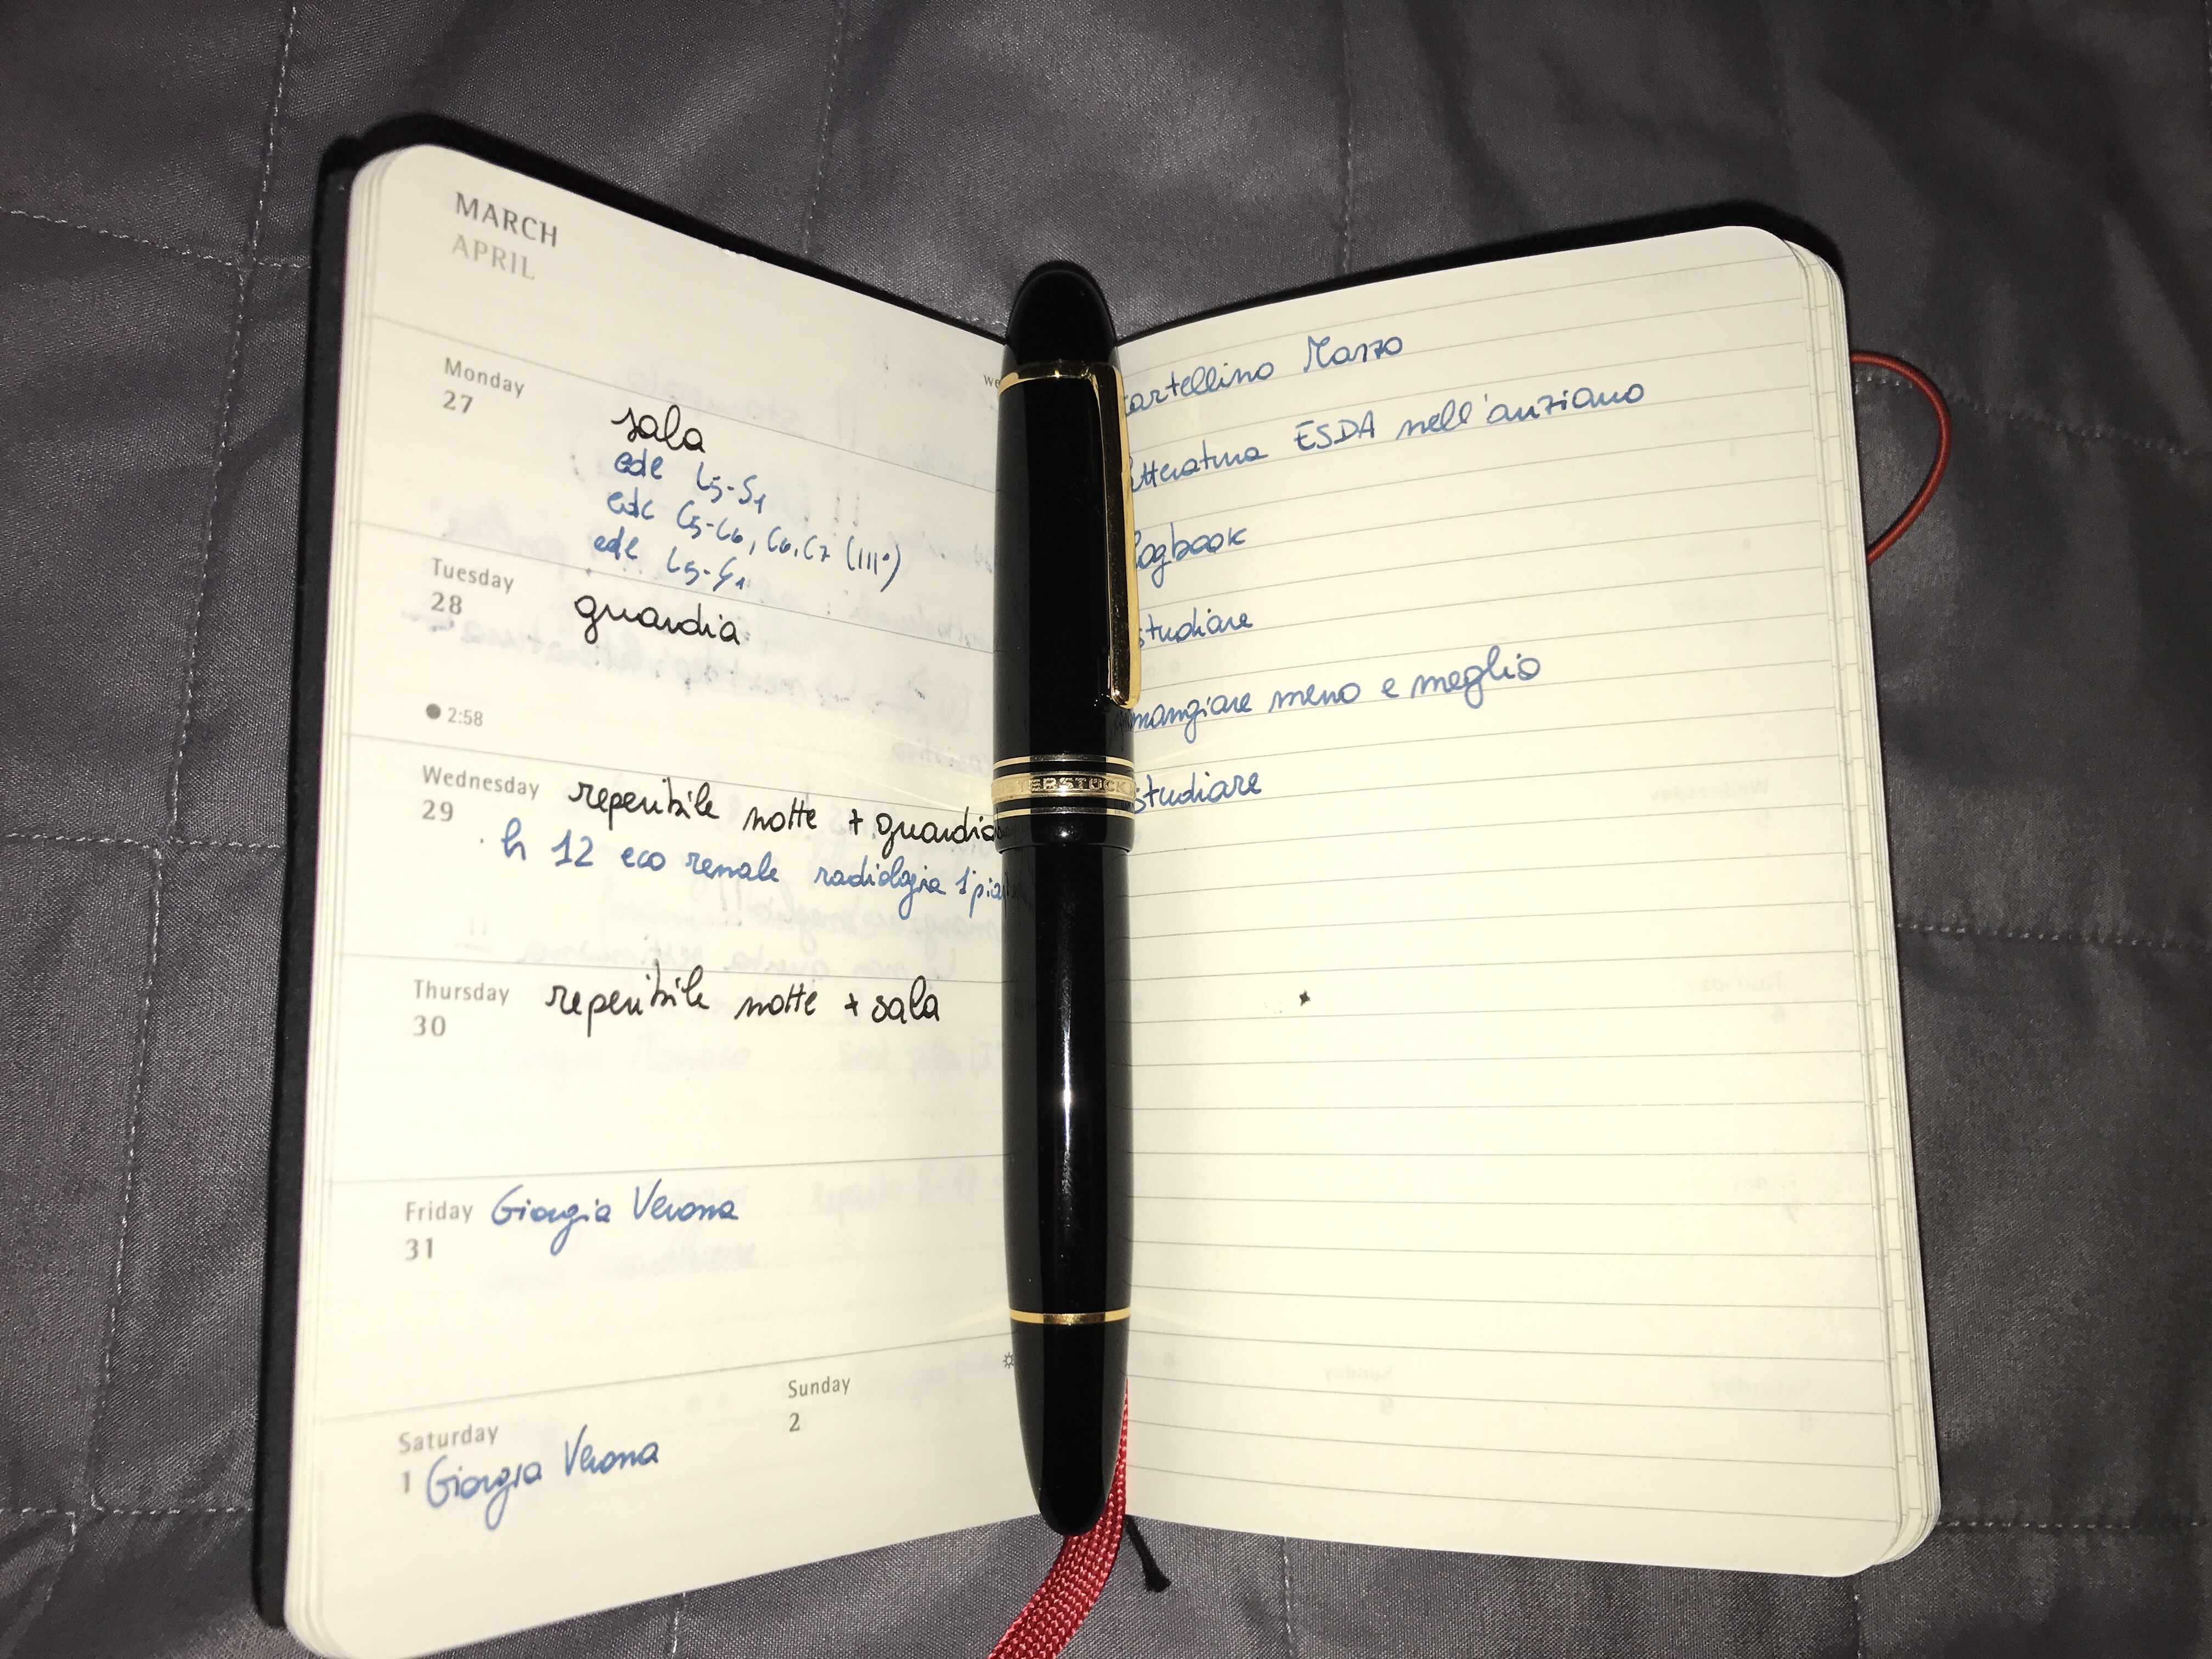 MARCH
APRIL
Monday
27
sala
ede L5-S1
edc C5-C6, C6-C7 (III°)
ede L5-S1
Tuesday
28
guardia
2:58
Wednesday
29
reperibile notte + guardia
h 12 eco renale radiologia 1°
Thursday
30
reperibile notte + sala
Friday
31
Giorgia Verona
Saturday
1
Giorgia Verona
Sunday
2
cartellino Marzo
letteratura ESDA nell'anziano
logbook
studiare
mangiare meno e meglio
studiare
TERSTÜCK